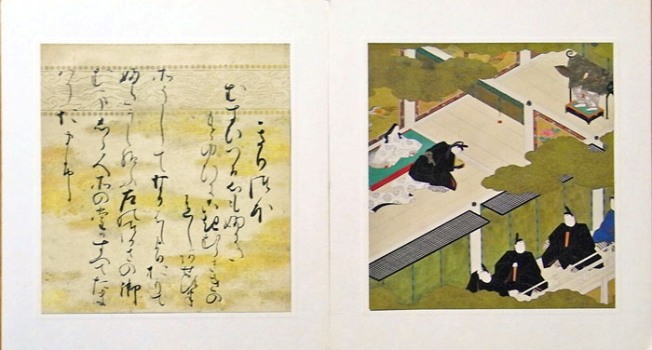 きりつほ
むすひつる心もふかき
もとゆひにこきむらさきの
色しあせすは
そうしてなかはしよりおりて
ふたうし給ふ左のつかさの御
むまくら人所のたかすへてたま
はりたまふ